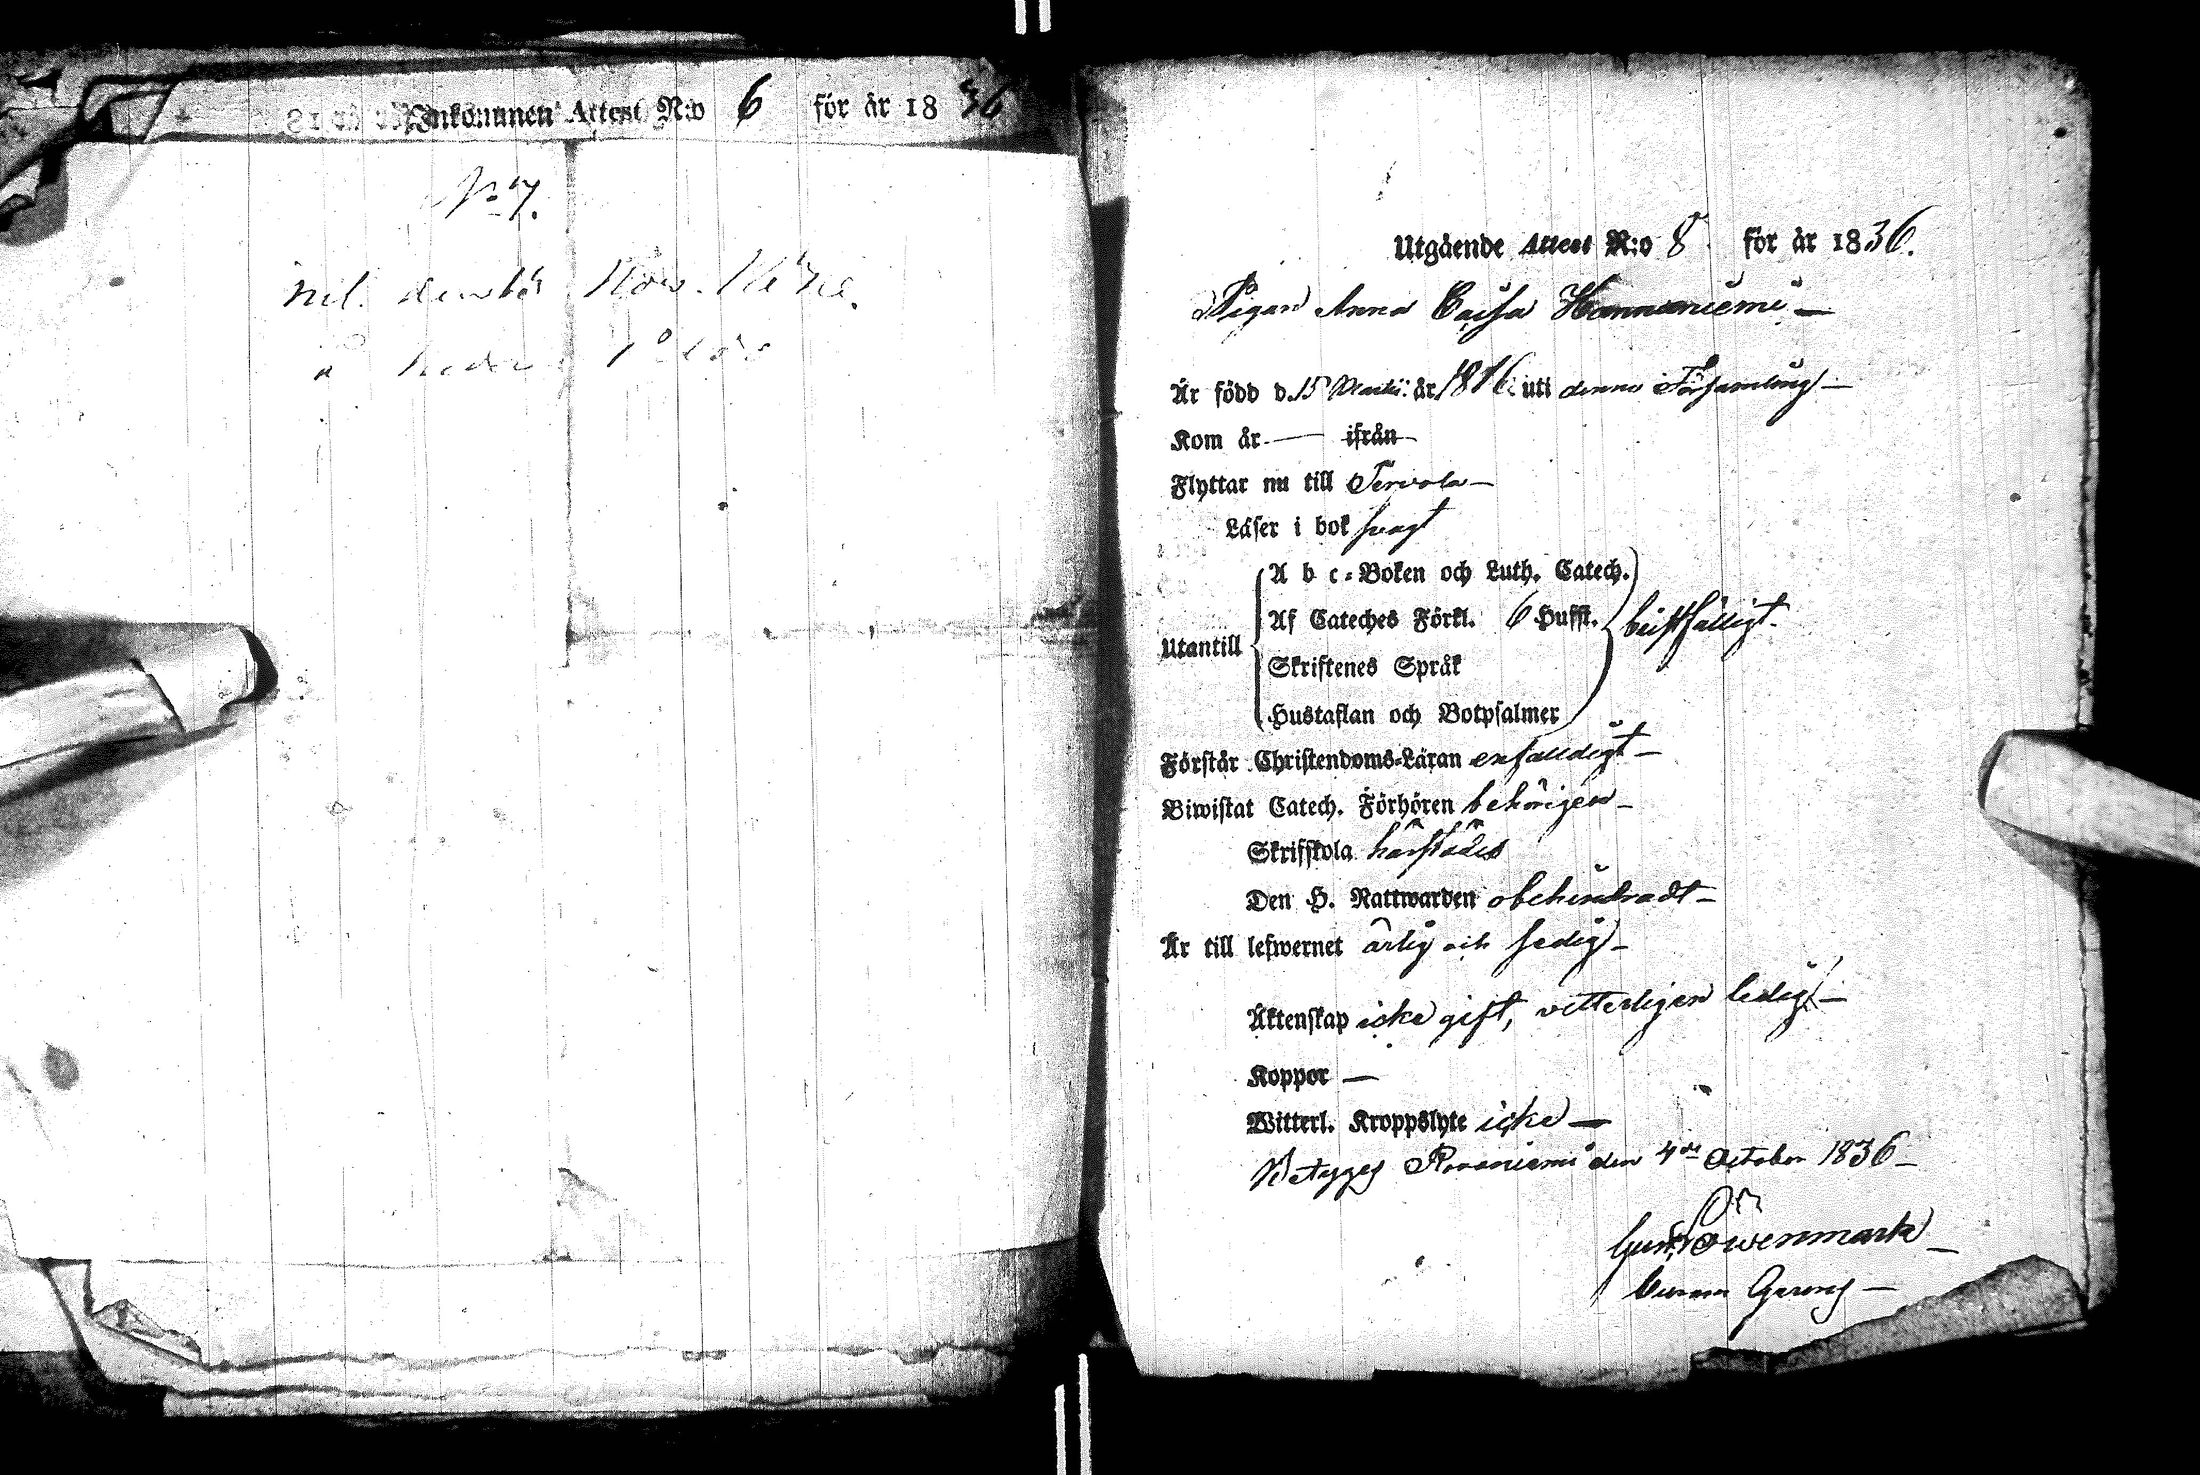 Inkommen Attest N:o 6 för år 1836
No 7.
Utgående Attest N:o 8. för år 1836.
Pigan Anna Caisa Hannuniemi —
Är född d. 15 Martii: år 1816 uti denna Församling —
Kom år — ifrån —
Flyttar nu till Tervola —
Läser i bok svagt
Utantill
A b c-Boken och Luth. Catech.
Af Cateches Förkl. 6 Hufst.
Skriftenes Språk
Hustaflan och Botpsalmer
bristfälligt.
Förstår Christendoms-Läran enfaldigt —
Biwistat Catech. Förhören behörigen —
Skrifskola härstädes
Den H. Nattwarden obehindradt —
Är till lefwernet ärlig och sedig —
Äktenskap icke gift, vitterligen ledig —
Koppor —
Witterl. Kroppslyte icke —
Betyges Rovaniemi den 4de October 1836 —
Löwenmark —